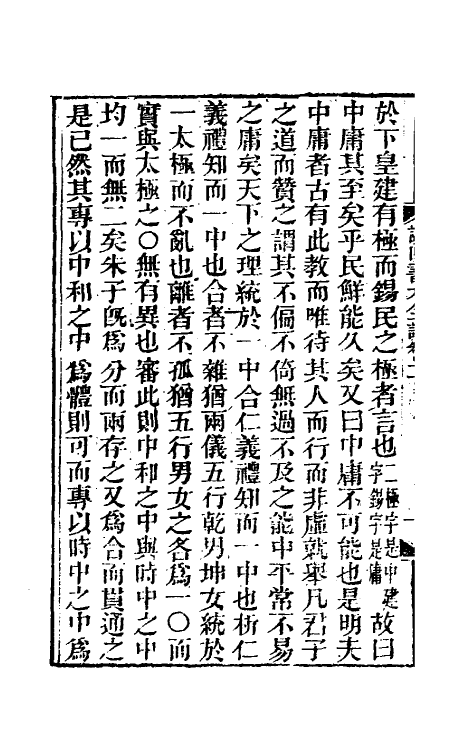 於下皇建有極而錫民之極者言也二極字是中建字錫字是庸故曰
中庸其至矣乎民鮮能久矣又曰中庸不可能也是明夫
中庸者古有此教而唯待其人而行而非虛就舉凡君子
之道而贊之謂其不偏不倚無過不及之能中平常不易
之庸矣天下之理統於一中合仁義禮知而一中也析仁
義禮知而一中也合者不雜猶兩儀五行乾男坤女統於
一太極而不亂也離者不孤猶五行男女之各爲一〇而
實與太極之〇無有異也審此則中和之中與時中之中
均一而無二矣朱子旣爲分而兩存之又爲合而貫通之
是已然其專以中和之中爲體則可而專以時中之中爲